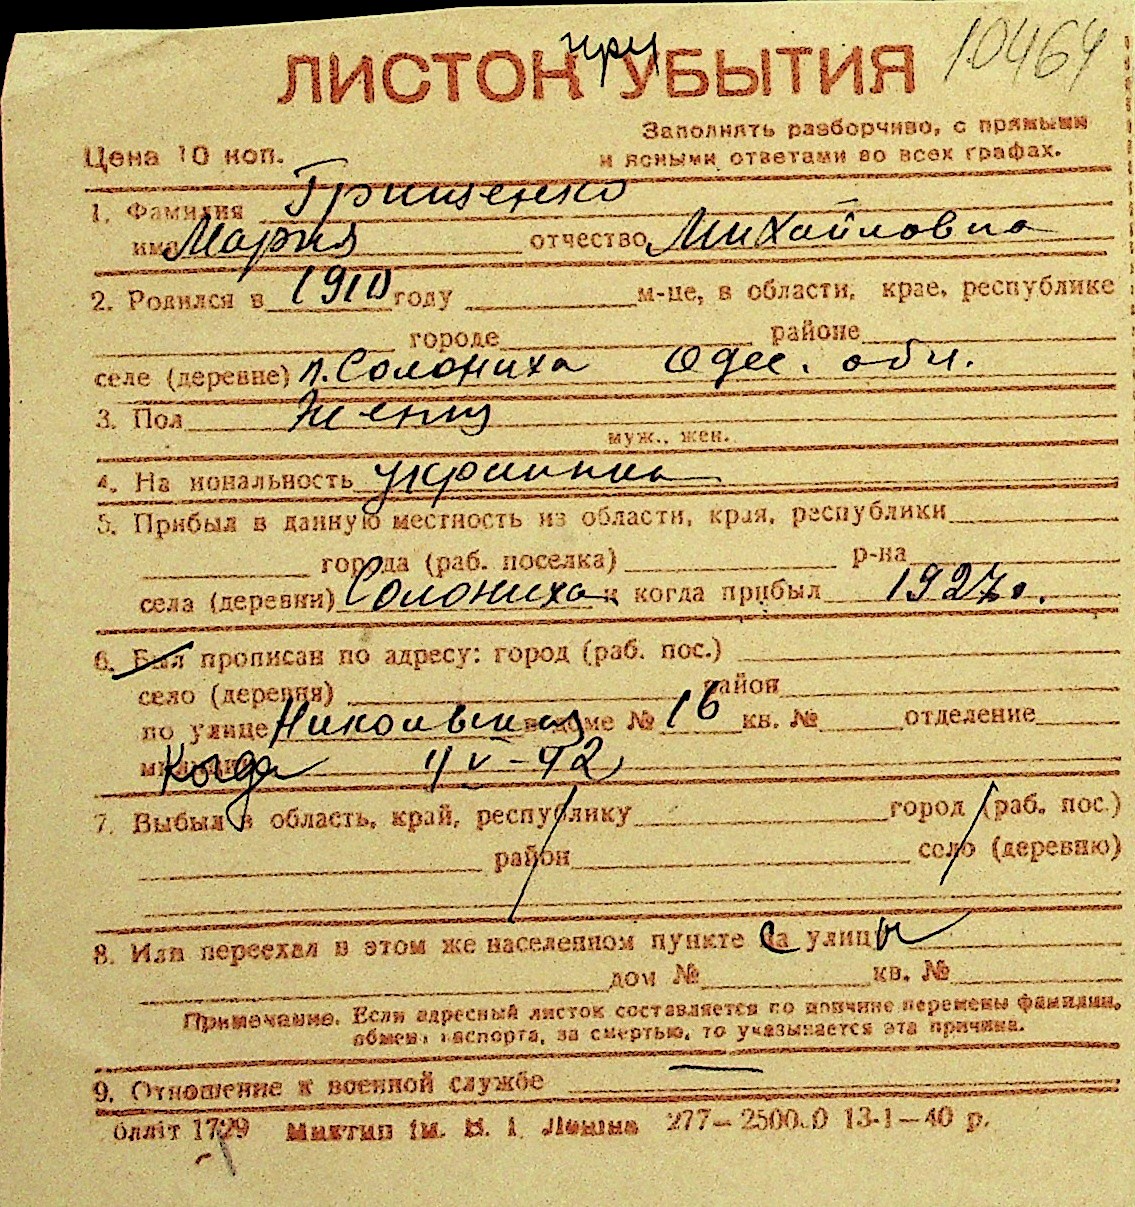 ЛИСТОК при УБЫТИЯ 10464
Заполнять разборчиво, с прямыми
Цена 10 коп.
и ясными ответами во всех графах.
1. Фамилия Грищенко
имя Мария отчество Михайловна
2. Родился в 1910 году м-це, в области, крае, республике
городе районе
селе (деревне) п. Солониха Одес. обл.
3. Пол
муж., жен.
4. На иональность украинка
5. Прибыл в данную местность из области, края, республики
города (раб. поселка) р-на
села (деревни) Солониха и когда прибыл 1927 г.
6. Был прописан по адресу: город (раб. пос.)
село (деревня) район
по улице в доме № 16 кв. № отделение
Когда
7. Выбыл в область, край, республику город (раб. пос.)
район село (деревню)
8. Или переехал в этом же населенном пункте на улицы
дом № кв. №
Примечание. Если адресный листок составляется по причине перемены фамилии,
обмена паспорта, за смертью, то указывается эта причина.
9. Отношение к военной службе —
білліт 1729 ім. В. І. Леніна 277— 2500.0 13-1—40 р.